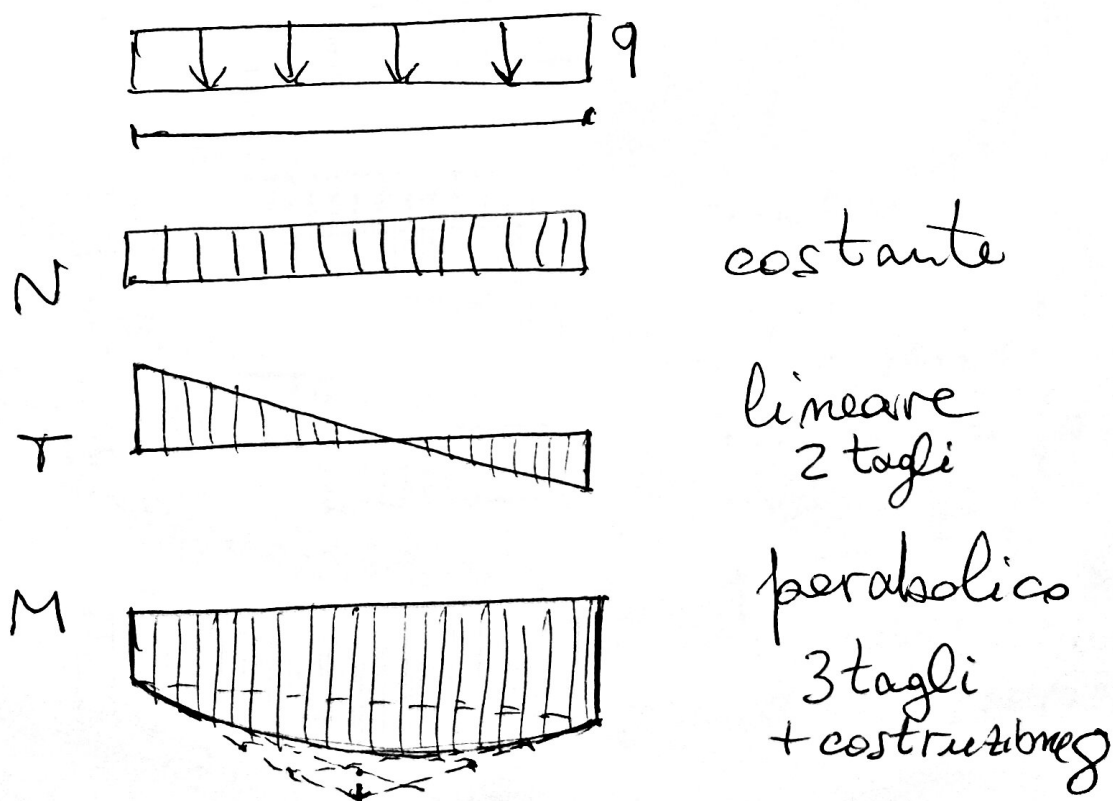 q
N
costante
T
lineare
2 tagli
M
parabolico
3 tagli
+ costruzione